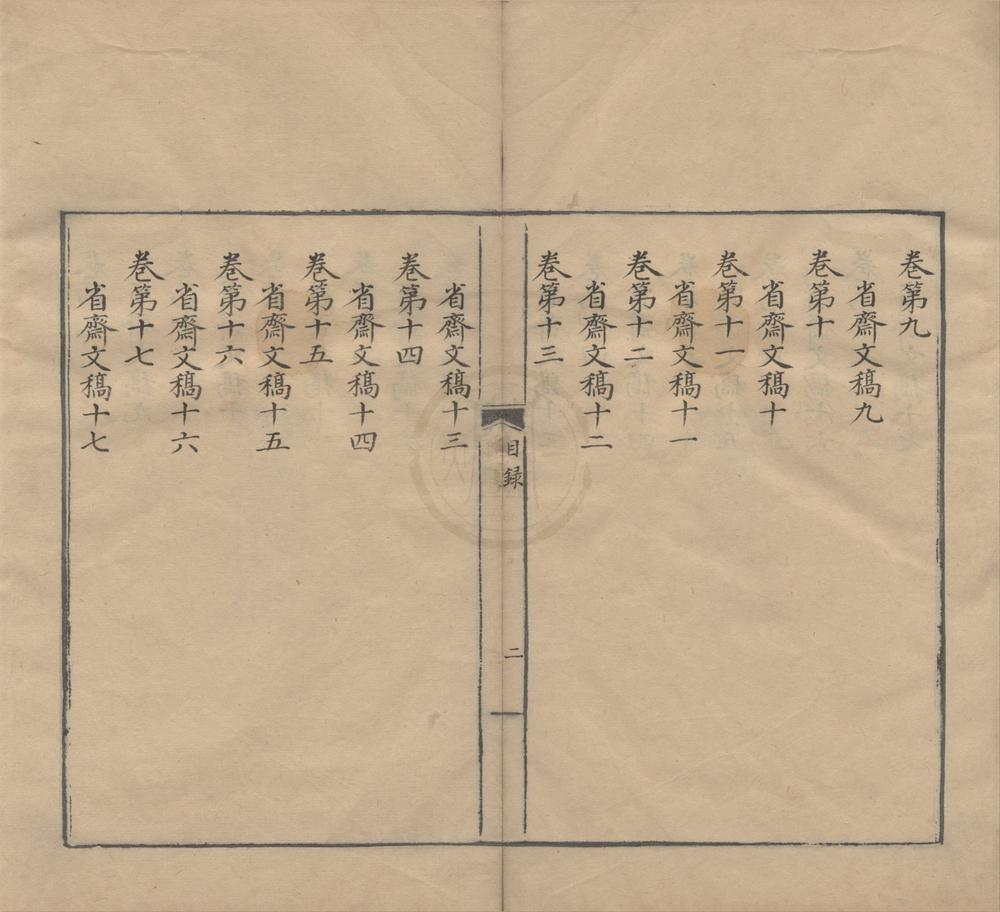 卷第九
省齋文稿九
卷第十
省齋文稿十
卷第十一
省齋文稿十一
卷第十二
省齋文稿十二
卷第十三
目録
二
省齋文稿十三
卷第十四
省齋文稿十四
卷第十五
省齋文稿十五
卷第十六
省齋文稿十六
卷第十七
省齋文稿十七